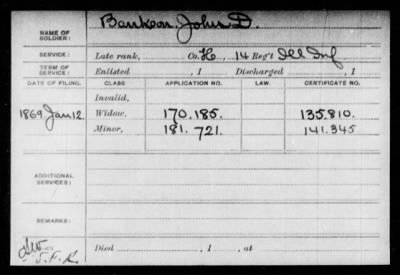 NAME OF SOLDIER: Bankson, John D.
SERVICE: Late rank, Co. H, 14 Reg't Ill Inf
TERM OF SERVICE: Enlisted , 1 Discharged , 1
DATE OF FILING. CLASS APPLICATION NO. LAW. CERTIFICATE NO.
Invalid,
1869 Jan 12 Widow, 170.185. 135.810.
Minor, 181.721. 141.345
ADDITIONAL SERVICES:
REMARKS:
Died , 1 , at
J.F.R.